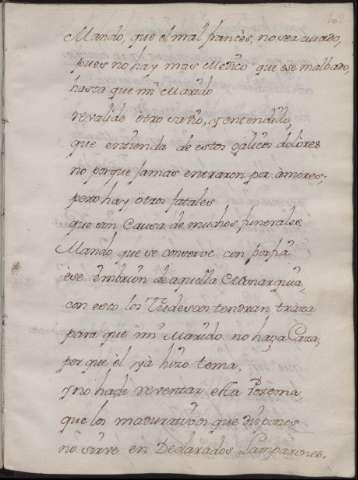 Mando, que el mal francès, no sea curado,
pues no hay mas Medico que ese malvado,
hasta que mi Marido
revalide otro sabio, y entendido,
que entienda de estos galicos dolores
no porque jamas entraron por amores;
pero hay otros fatales
que son causa de muchos funerales.
Mando que se conserve con porfia
ese embrion de aquella Monarquia,
con esto los Tudescos tendran traza
para que mi Marido no haga Caza,
porque èl ya hizo tema,
y no hade reventar esta Postema,
que los madurativos que
no sirve en Declarados Lamparones.